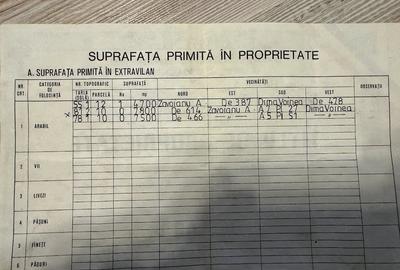 SUPRAFAȚA PRIMITĂ ÎN PROPRIETATE
A. SUPRAFAȚA PRIMITĂ ÎN EXTRAVILAN
NR. CRT. CATEGORIA DE FOLOSINȚĂ NR. TOPOGRAFIC SUPRAFAȚĂ VECINĂTĂȚI OBSERVAȚII
TARLA (SOLA) PARCELĂ Ha mp NORD EST SUD VEST
55 1 12 1 4700 Zavoianu A De 387 Dima Voinea De 428
10 0 7800 De 614 Zavoianu A A2 Pl 27 Dima Voinea
1 ARABIL x 78 1 10 0 7500 De 466 — " — A5 Pl 51 — " —
2 VII
3 LIVEZI
4 PĂȘUNI
5 FÎNEȚE
6 PĂDURI